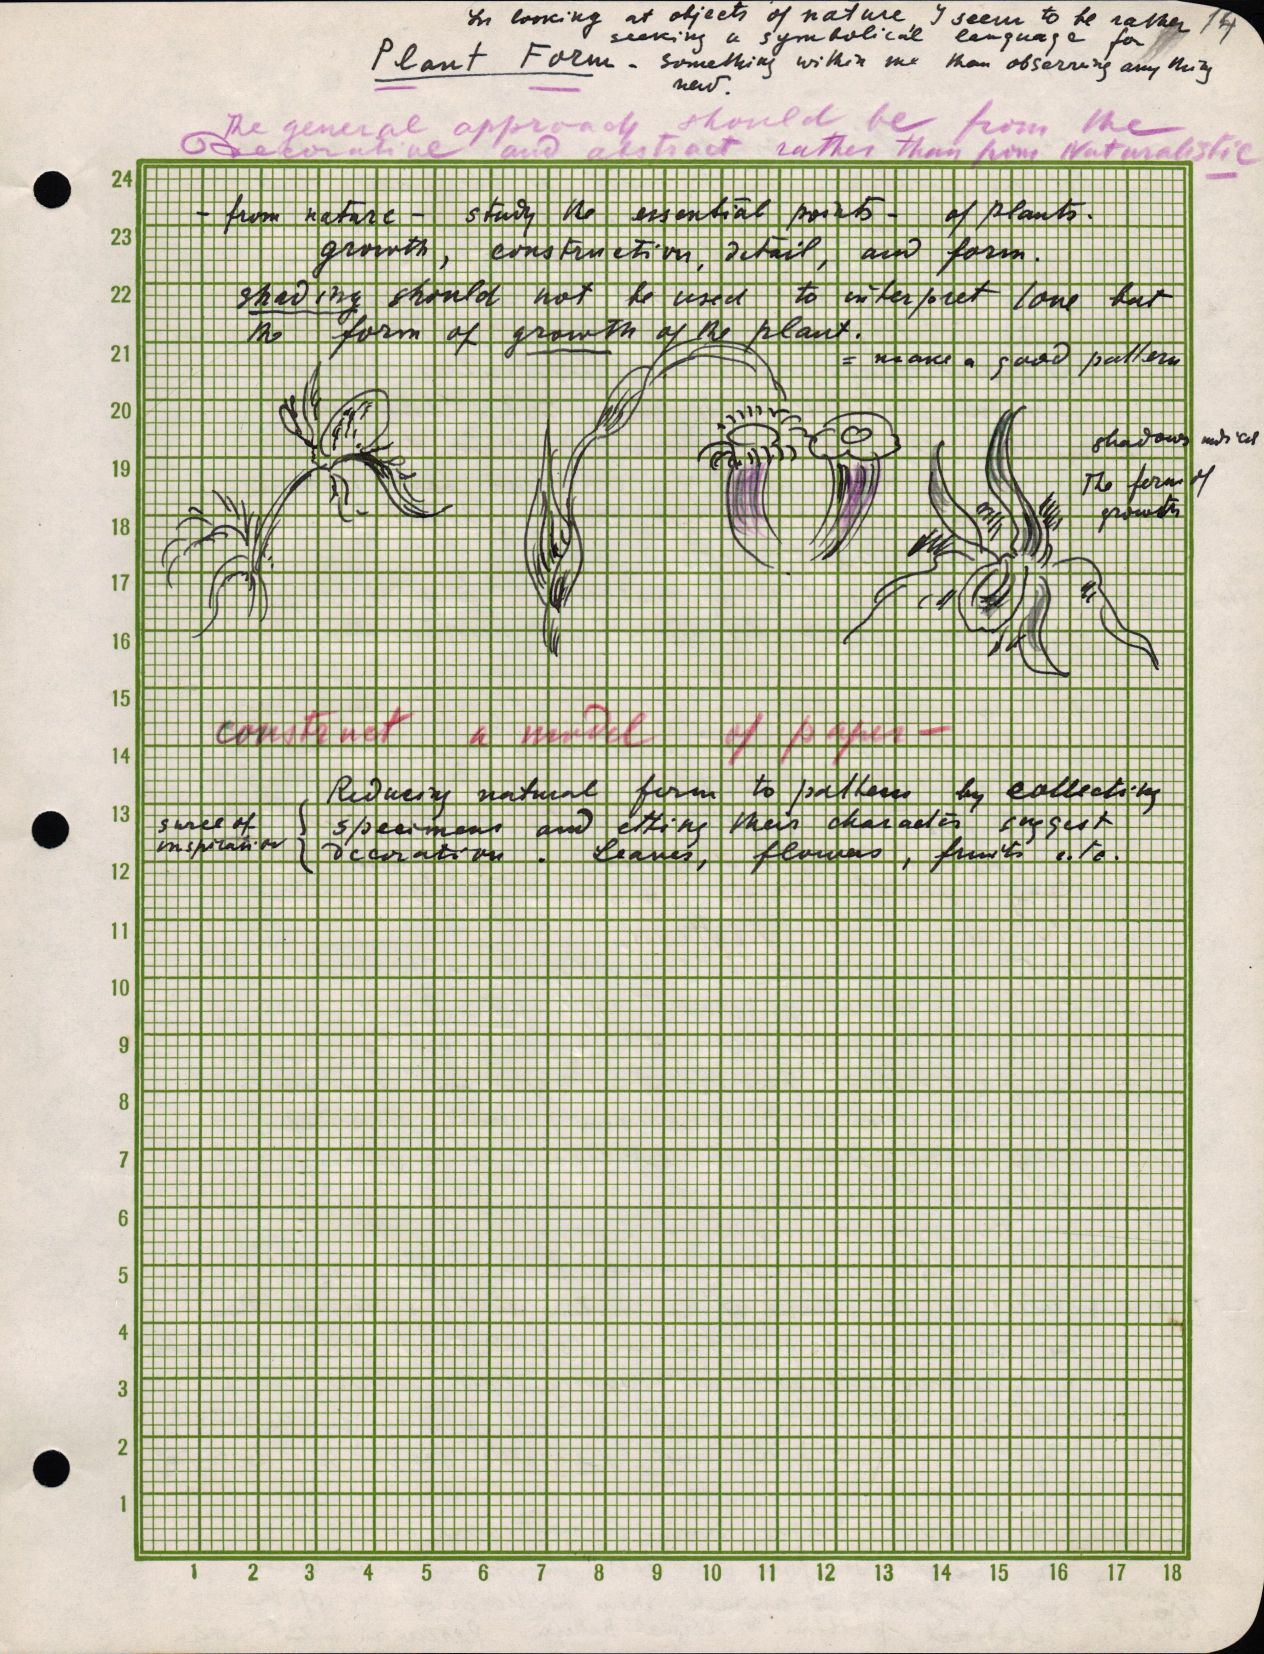 In looking at objects of nature, I seem to be rather 14
seeking a symbolical language for
Plant Form - something within me than observing any thing
new.
The general approach should be from the
Decorative and abstract rather than from Naturalistic
- from nature - study the essential points - of plants.
growth, construction, detail, and form.
shading should not be used to interpret tone but
the form of growth of the plant.
= make a good pattern
shadows
the form of
growth
construct a model of paper -
Reducing natural form to pattern by collecting
surce of
specimens and their character suggest
inspiration
decoration. Leaves, flowers, fruits etc.
24
23
22
21
20
19
18
17
16
15
14
13
12
11
10
9
8
7
6
5
4
3
2
1
1 2 3 4 5 6 7 8 9 10 11 12 13 14 15 16 17 18